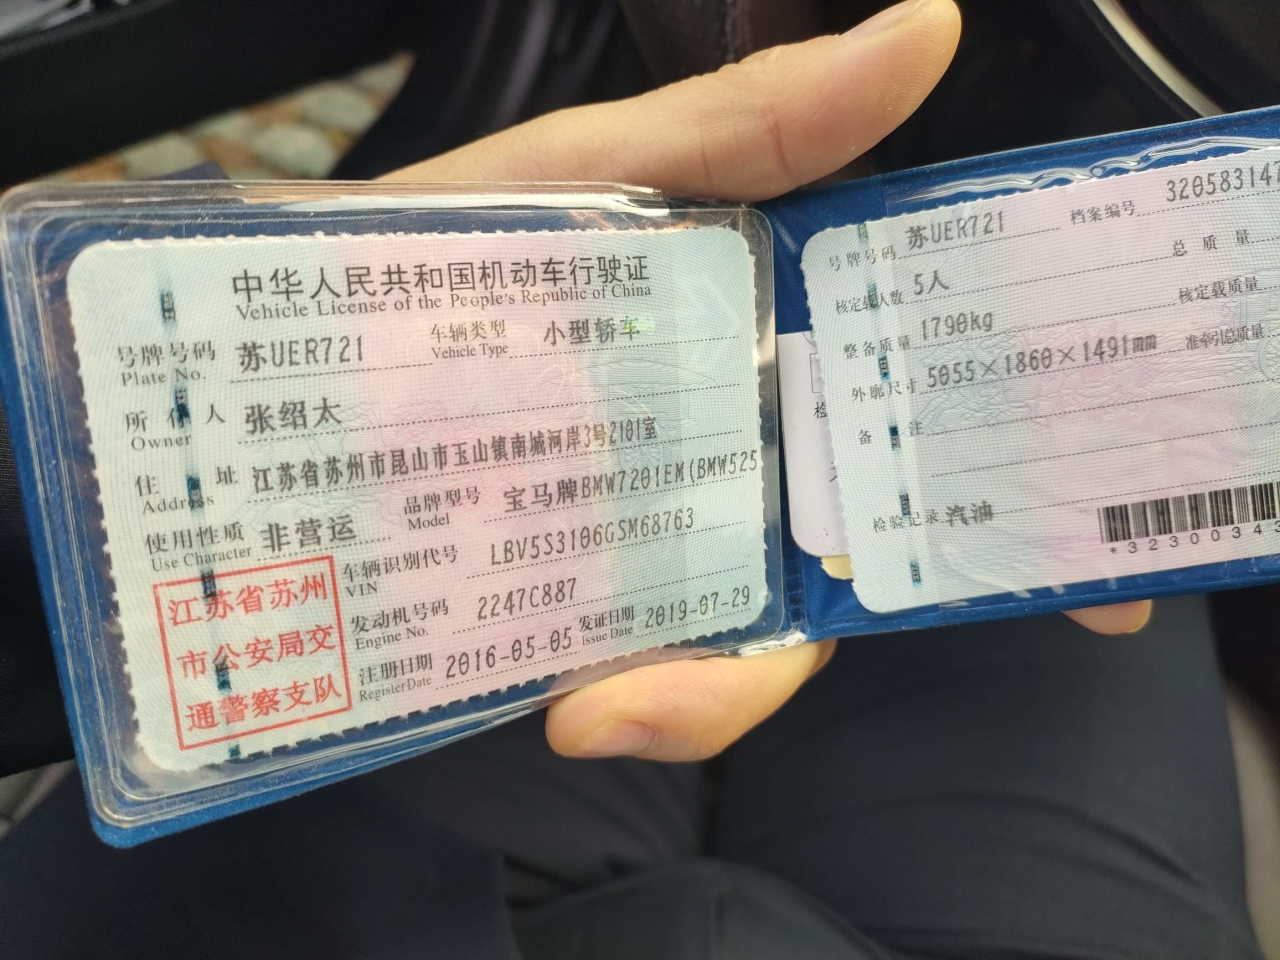 中华人民共和国机动车行驶证
Vehicle License of the People's Republic of China
号牌号码 苏UER721 车辆类型 小型轿车
Plate No. Vehicle Type
所有人 张绍太
Owner
住址 江苏省苏州市昆山市玉山镇南城河岸3号2101室
Address
使用性质 非营运 品牌型号 宝马牌BMW7201EM(BMW525
Use Character Model
车辆识别代号 LBV5S3106GSM68763
VIN
发动机号码 2247C887
Engine No.
注册日期 2016-05-05 发证日期 2019-07-29
Register Date Issue Date
江苏省苏州
市公安局交
通警察支队
号牌号码 苏UER721 档案编号 320583147
核定载人数 5人 总质量
整备质量 1790kg 核定载质量
外廓尺寸 5055×1860×1491mm 准牵引总质量
备注
检验记录 汽油
*3230034